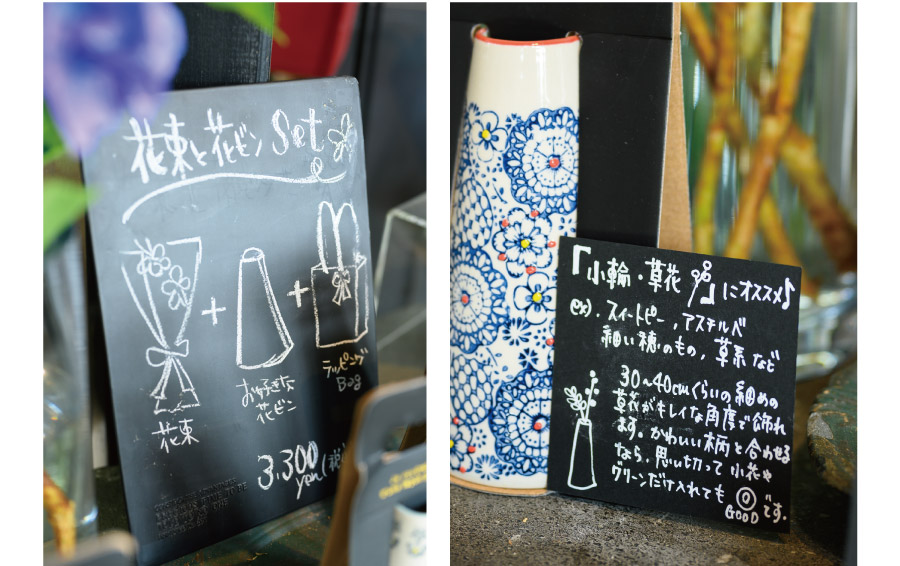 花束と花ビン Set
+
+
花束
お好きな
花ビン
ラッピング
Bag
3,300
yen(税
「小輪・草花」にオススメ♪
ex). スイートピー, アスチルベ
細い穂のもの, 草系 など
30~40cmぐらいの細めの
草花がキレイな角度で飾れ
ます。かわいい柄と合わせる
なら、思い切って小花や
グリーンだけ入れても ◎です.
GOOD